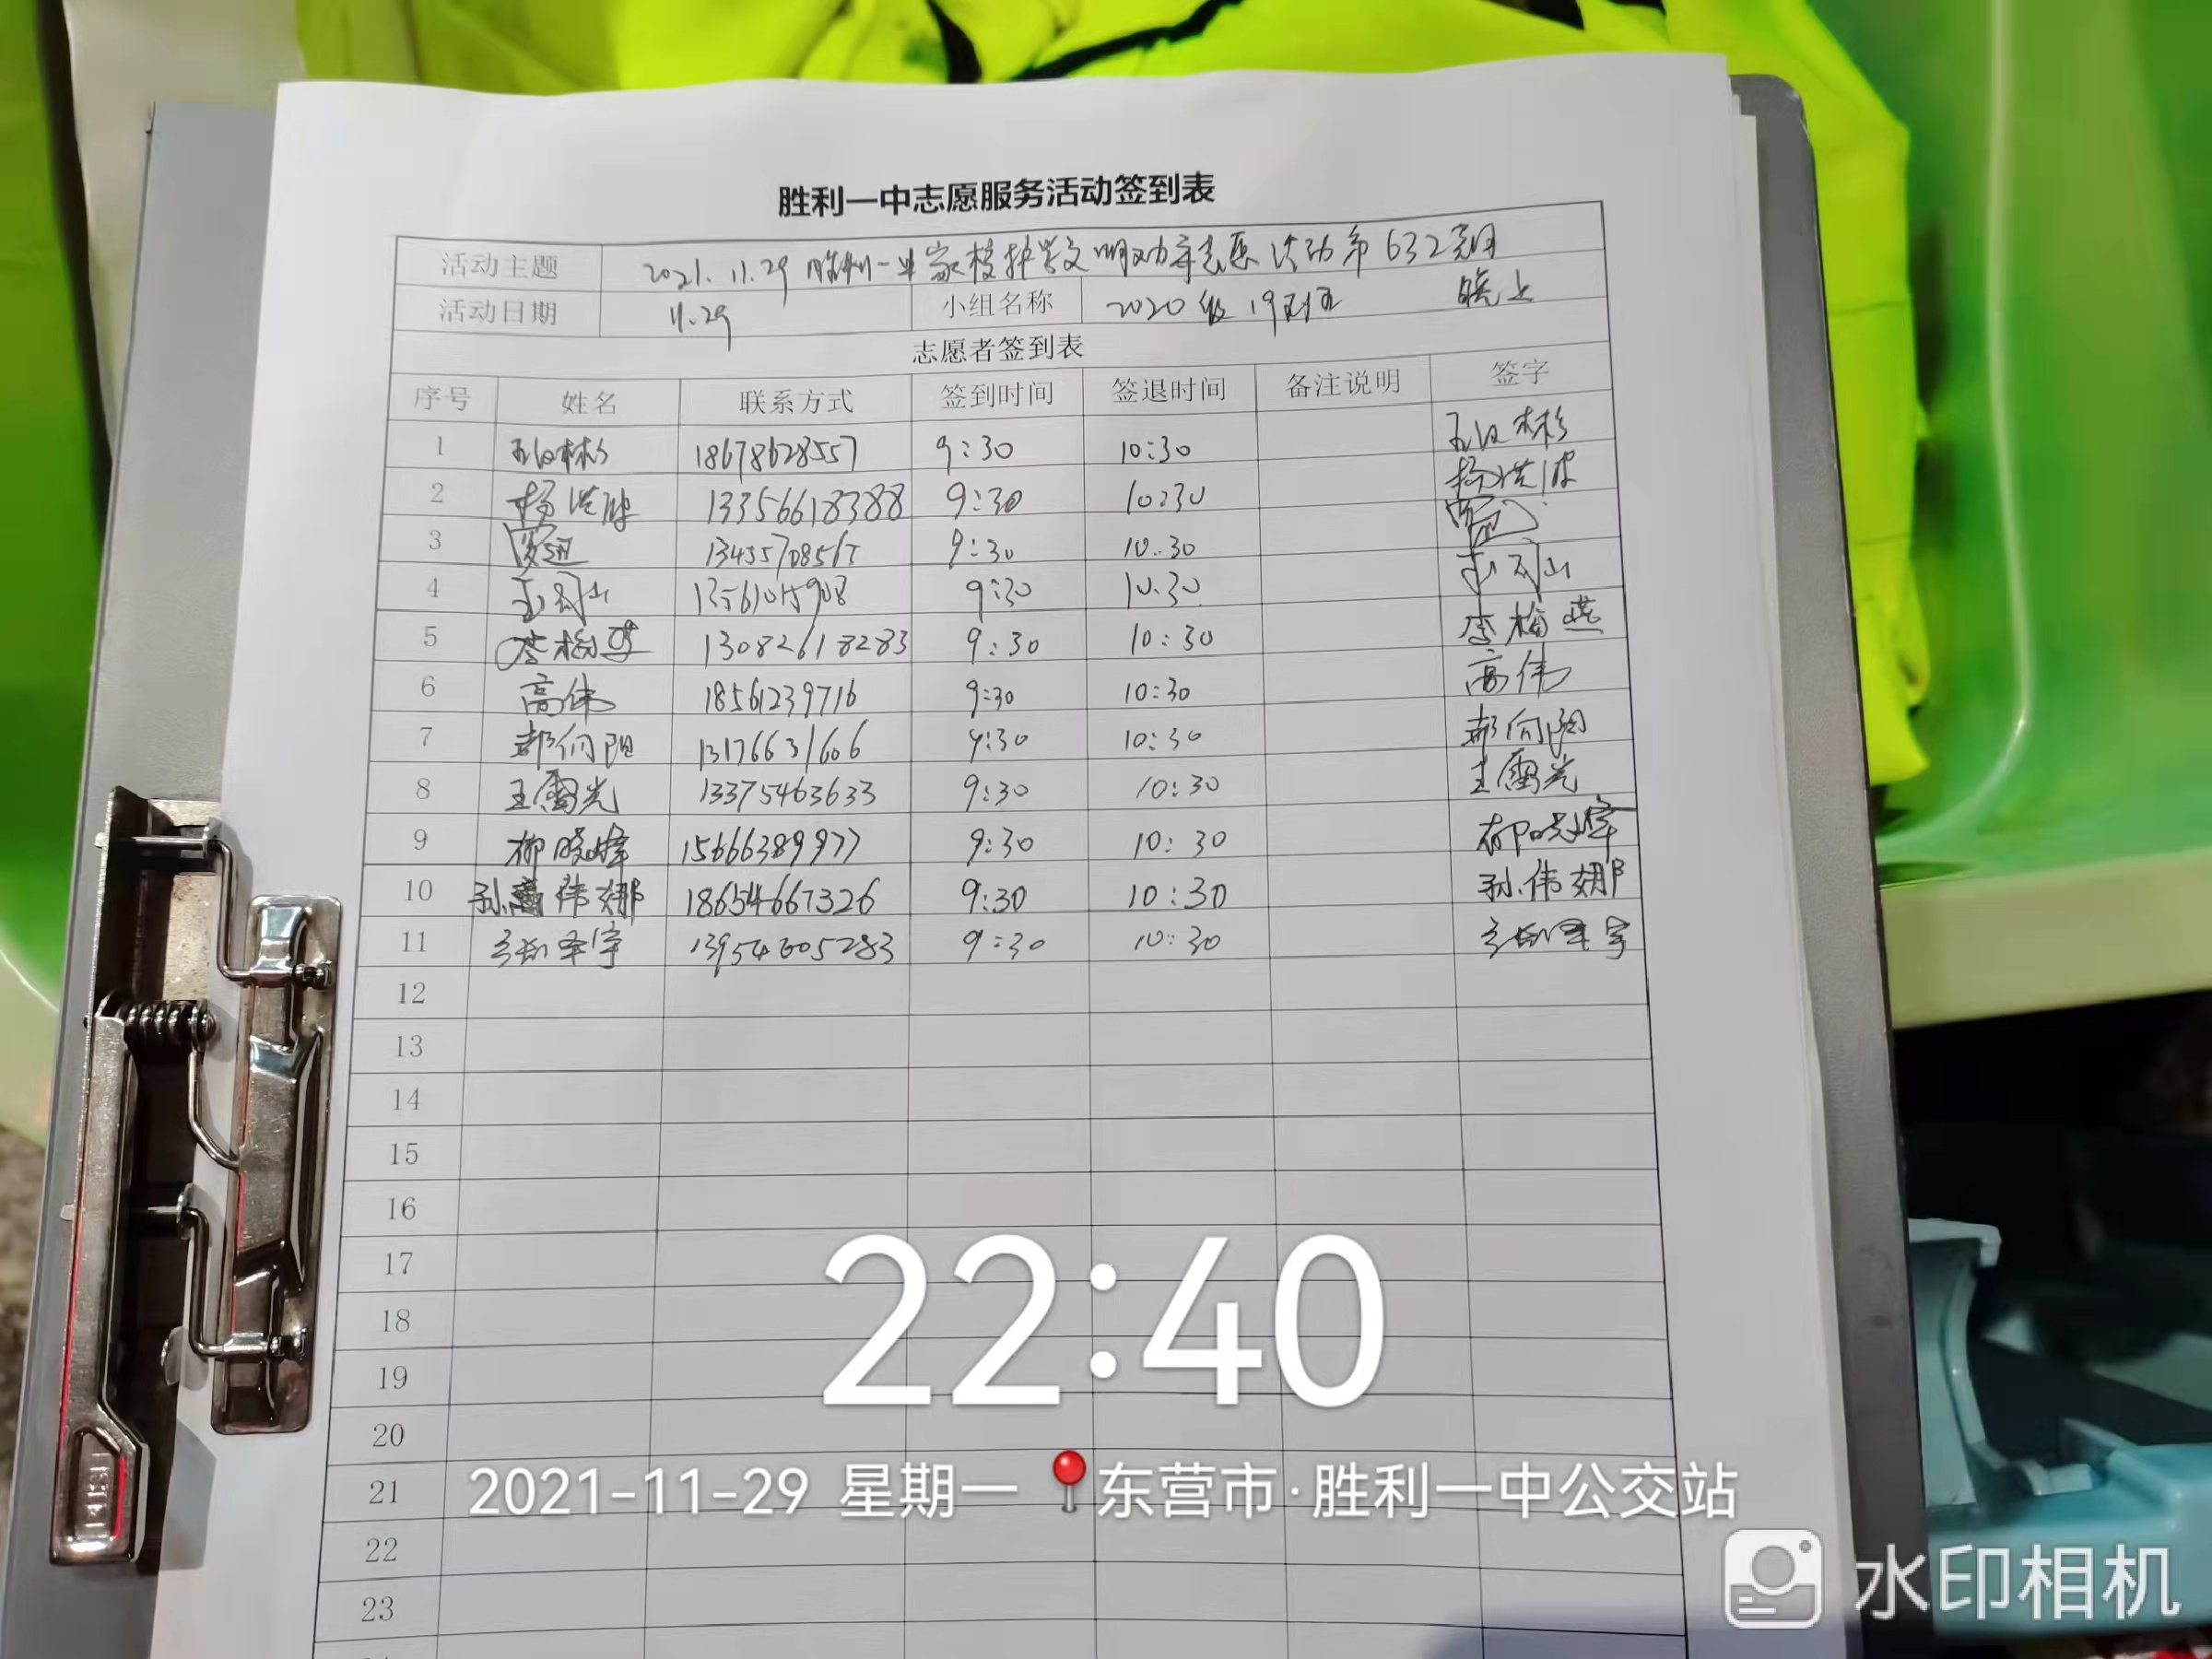 胜利一中志愿服务活动签到表
活动主题 2021.11.29 胜利一中家校护学文明劝导志愿活动第632期
活动日期 11.29 小组名称 2020级19班 晚上
志愿者签到表
序号 姓名 联系方式 签到时间 签退时间 备注说明 签字
1 18678628557 9:30 10:30
2 杨洪波 13356618388 9:30 10:30 杨洪波
3 9:30 10:30
4 13561015908 9:30 10:30
5 李梅燕 13082618283 9:30 10:30 李梅燕
6 高伟 18561239716 9:30 10:30 高伟
7 郝向阳 13176631606 9:30 10:30 郝向阳
8 王雷光 13375463633 9:30 10:30 王雷光
9 柳晓峰 15666389977 9:30 10:30 柳晓峰
10 孙伟娜 18654667326 9:30 10:30 孙伟娜
11 13954605283 9:30 10:30
12
13
14
15
16
17
18
19
20
21
22
23
22:40
2021-11-29 星期一 东营市·胜利一中公交站
水印相机